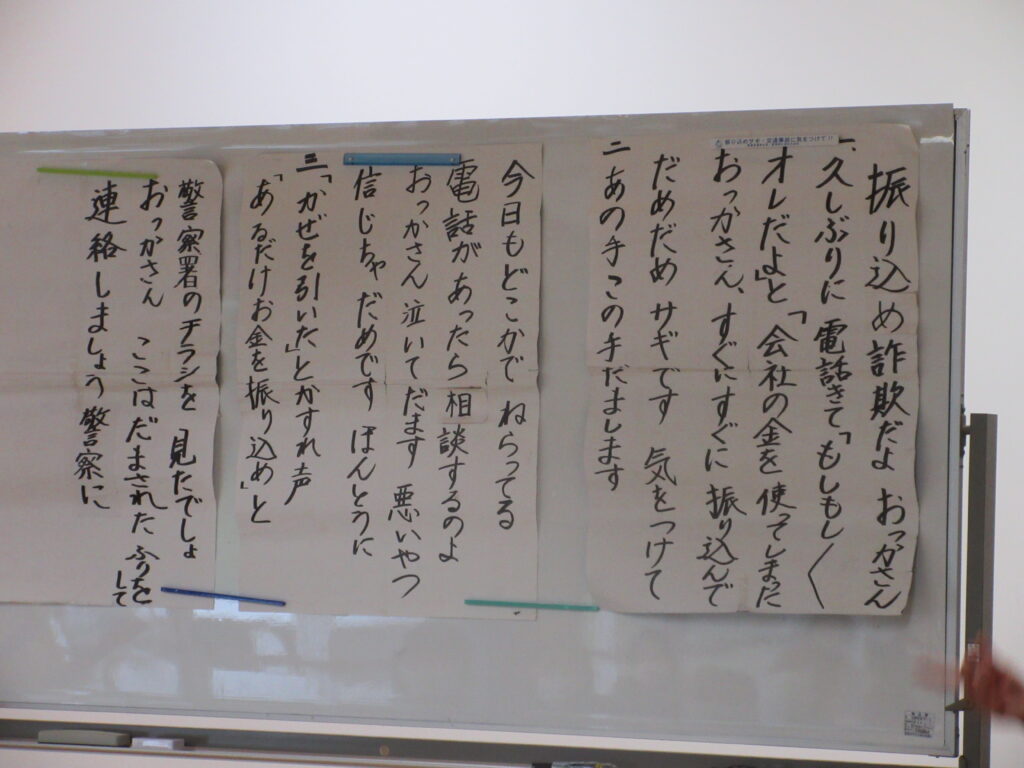 振り込め詐欺だよ おっかさん
一、久しぶりに 電話きて「もしもし〱
オレだよ」と「会社の金を 使ってしまった
おっかさん、すぐにすぐに 振り込んで
だめだめ サギです 気をつけて
二 あの手この手だまします
今日もどこかで ねらってる
電話があったら 相談するのよ
おっかさん 泣いてだます 悪いやつ
信じちゃ だめです ほんとうに
三 「かぜを引いた」とかすれ声
「あるだけお金を振り込め」と
警察署のチラシを 見たでしょ
おっかさん ここはだまされた ふりをして
連絡しましょう 警察に